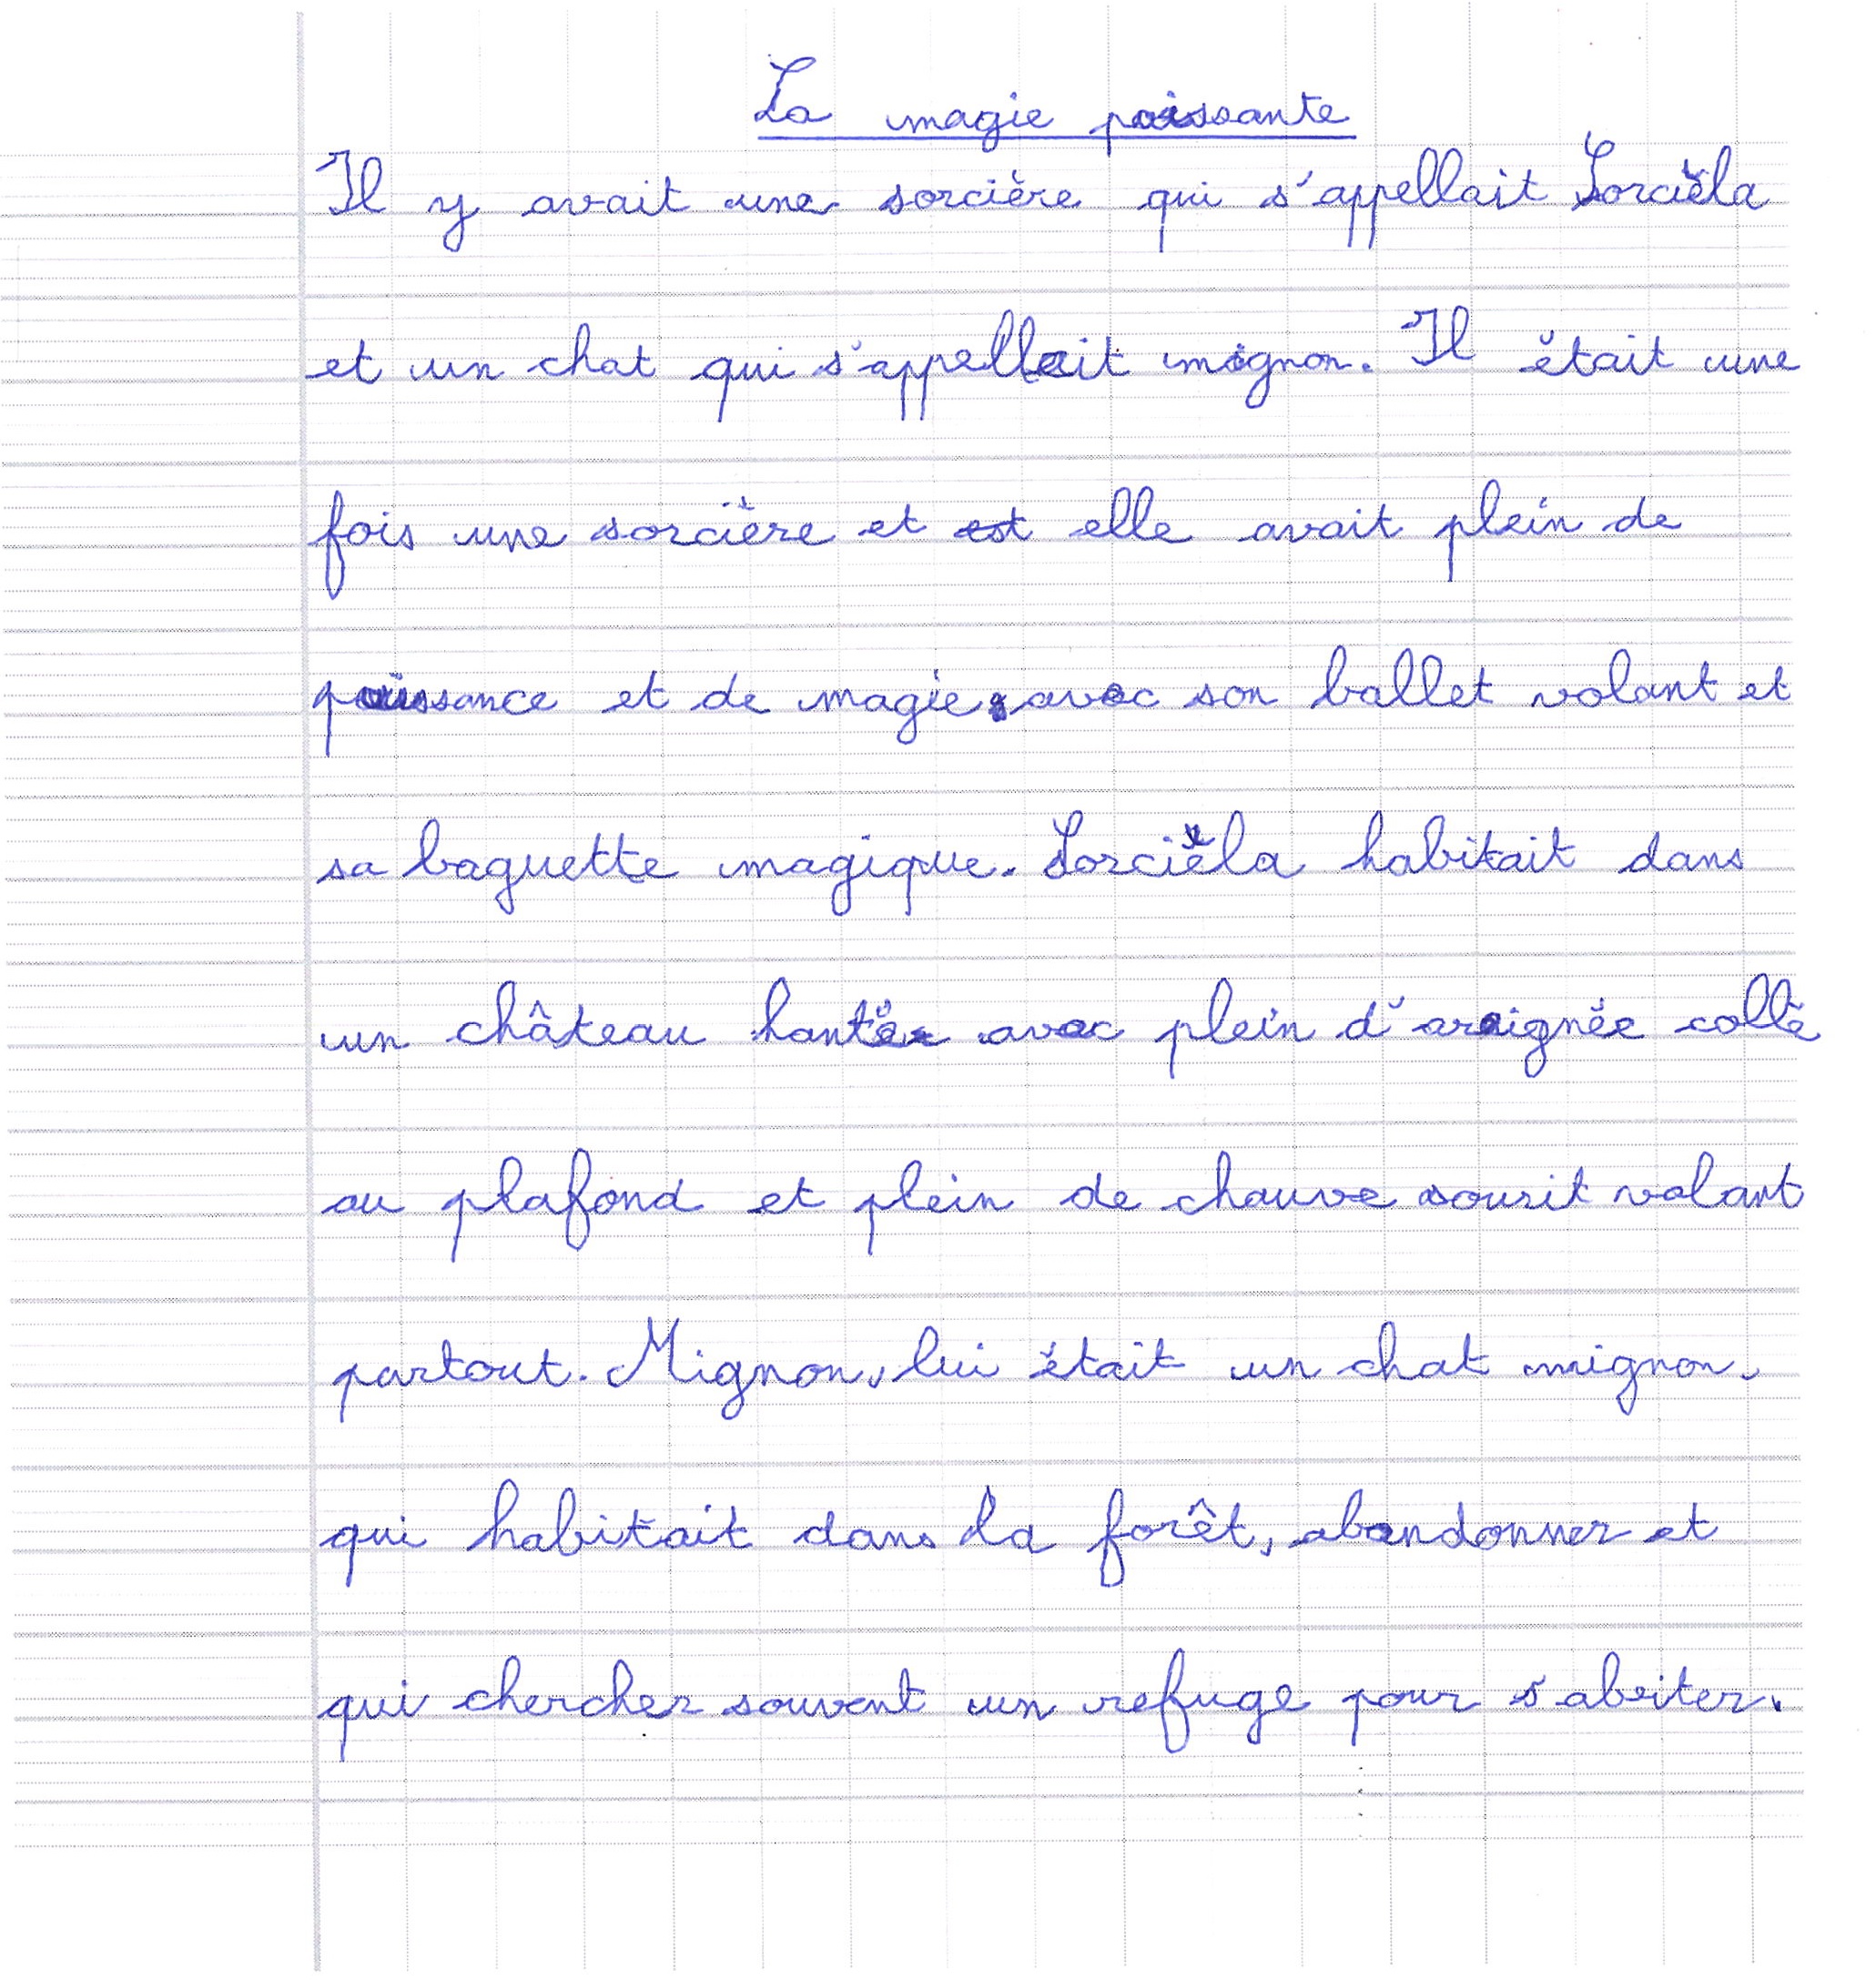 La magie puissante
Il y avait une sorcière qui s'appellait Sorcièla
et un chat qui s'appellait mignon. Il était une
fois une sorcière et est elle avait plein de
puissance et de magie, avec son ballet volant et
sa baguette magique. Sorcièla habitait dans
un château hanté avec plein d'araignée collé
au plafond et plein de chauve sourit volant
partout. Mignon, lui était un chat mignon,
qui habitait dans la forêt, abandonner et
qui chercher souvent un refuge pour s'abriter.